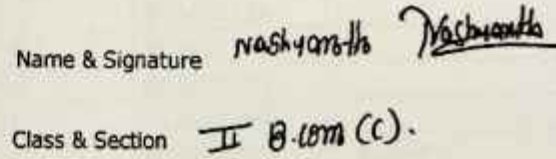 Name & Signature Nashyanth Nashyanth
Class & Section II B.com (C).